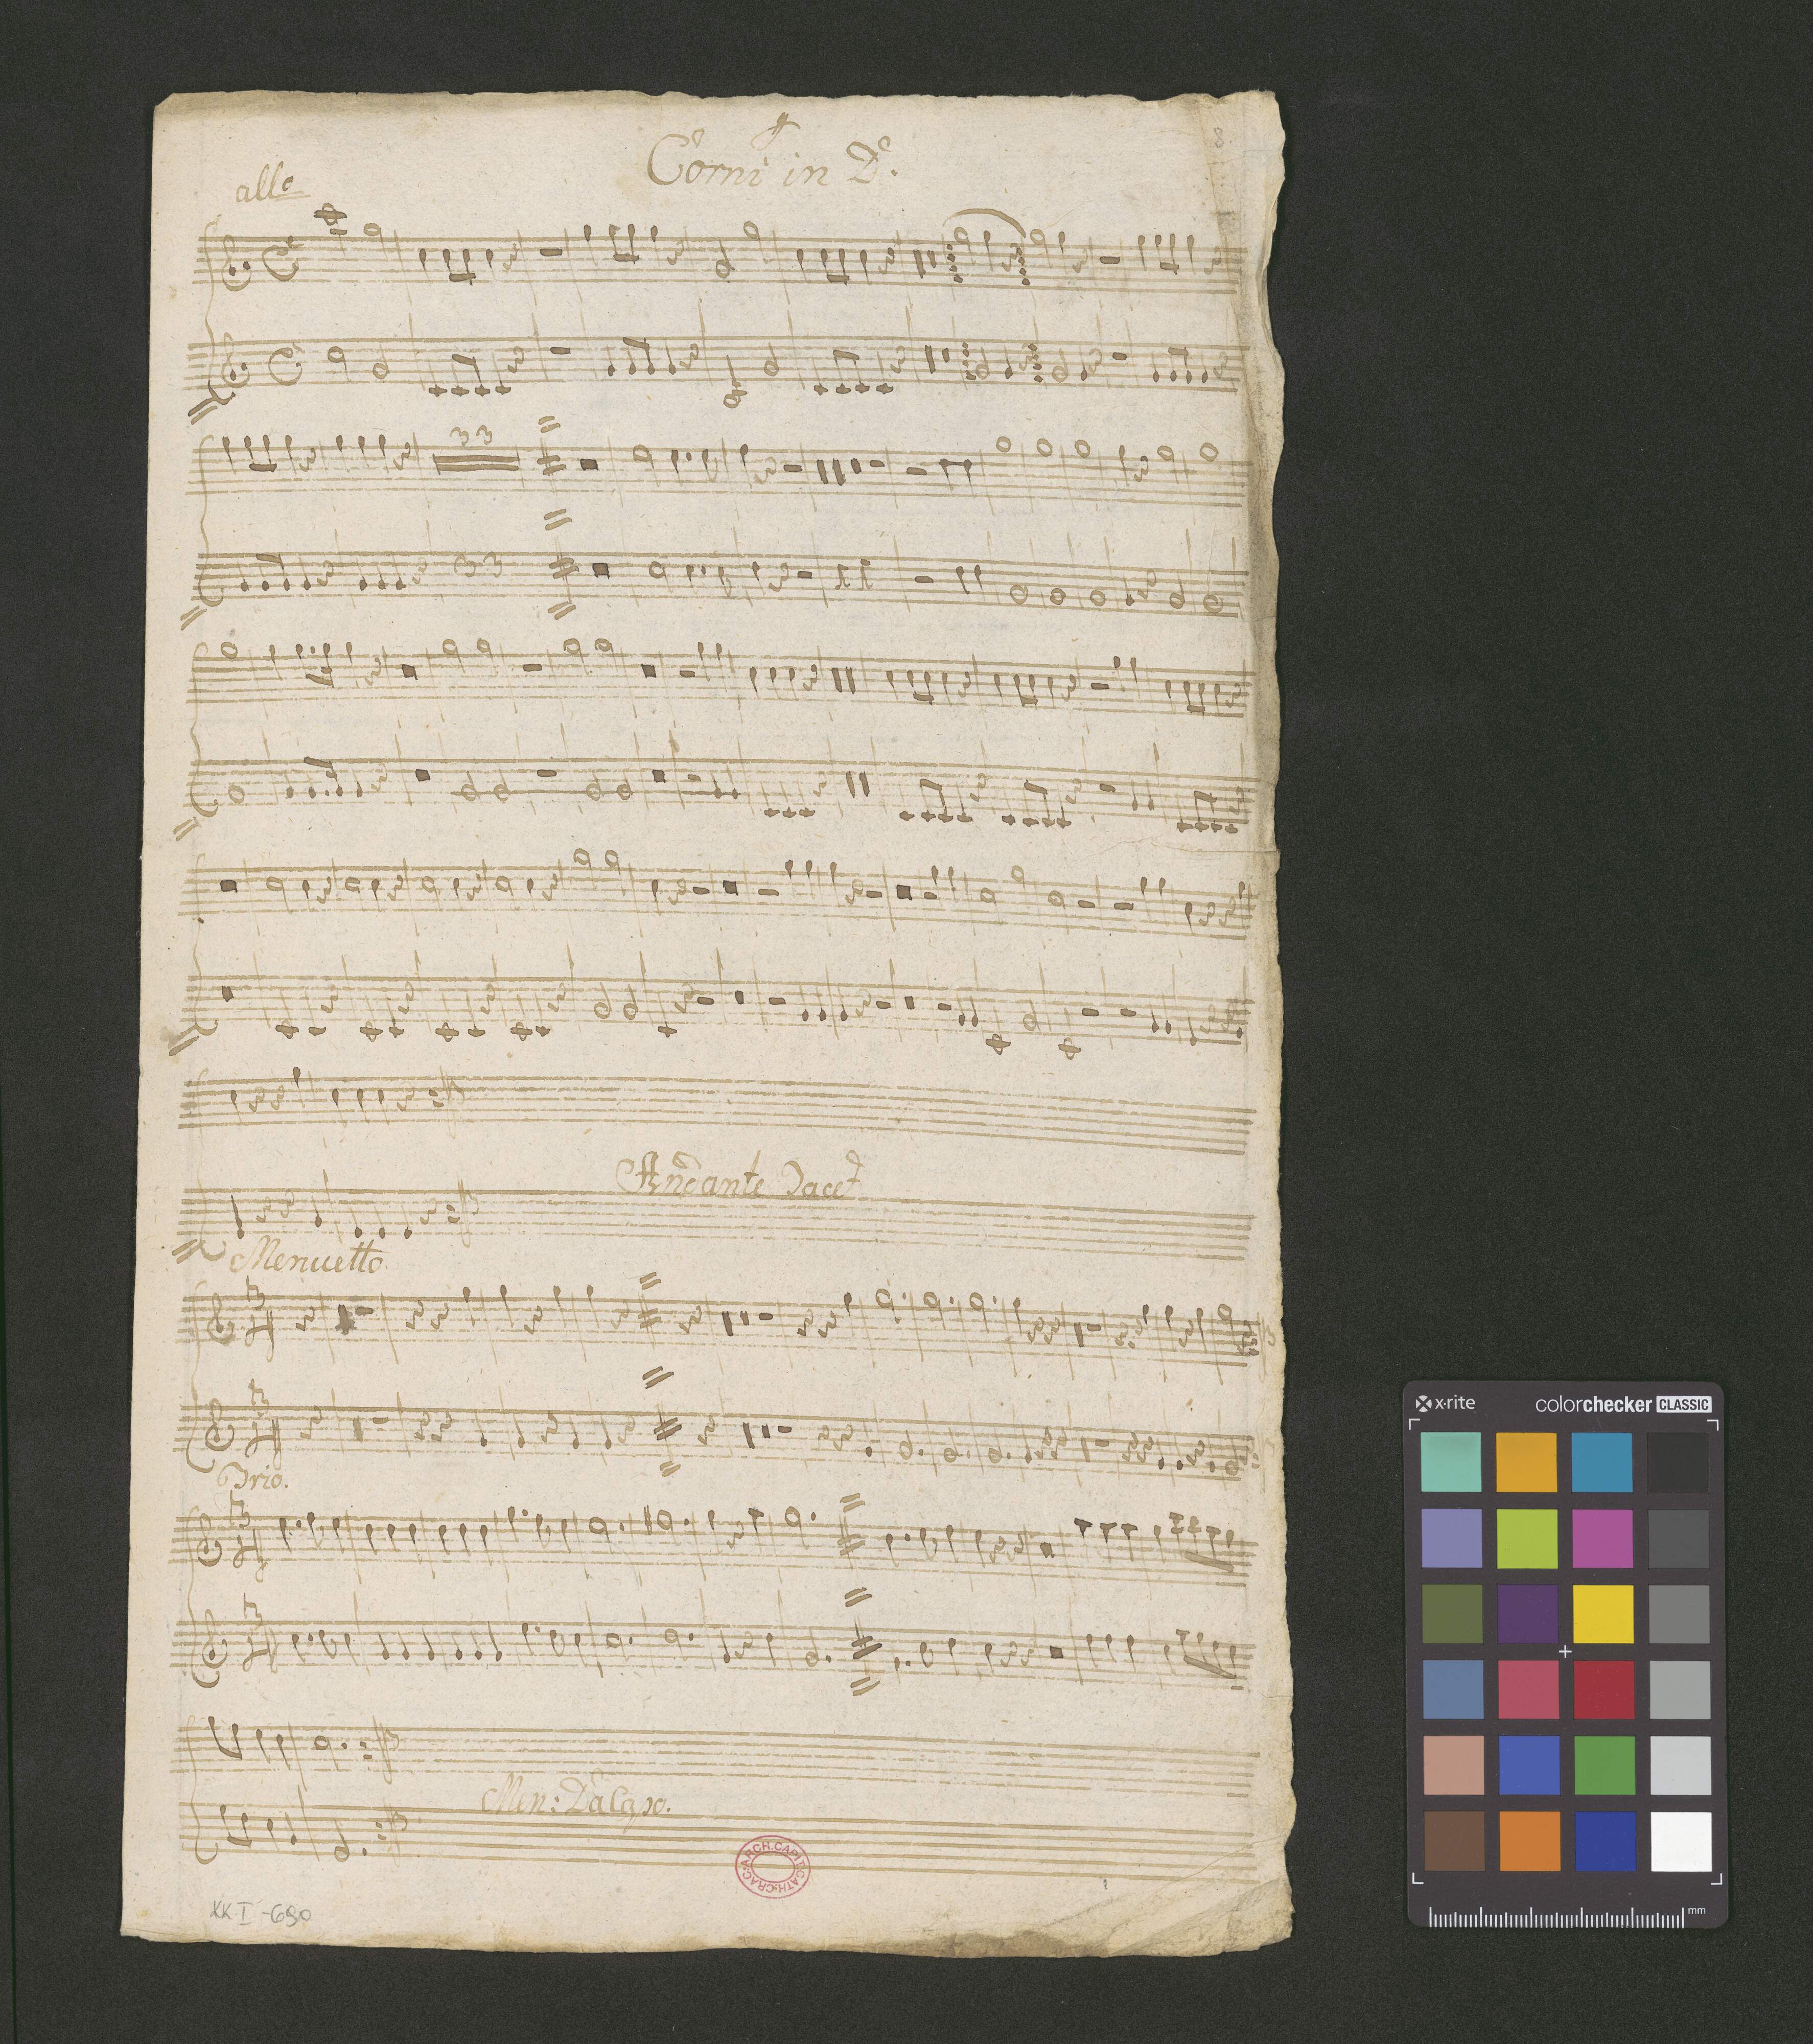 8.
Corni in D.
allo
33
33
Andante Tacet
Menuetto
3
3
Trio.
3
3
Men: Da Capo.
ARCH.CAPIT.CATH.CRAC.
KK I-690
x-rite colorchecker CLASSIC
mm